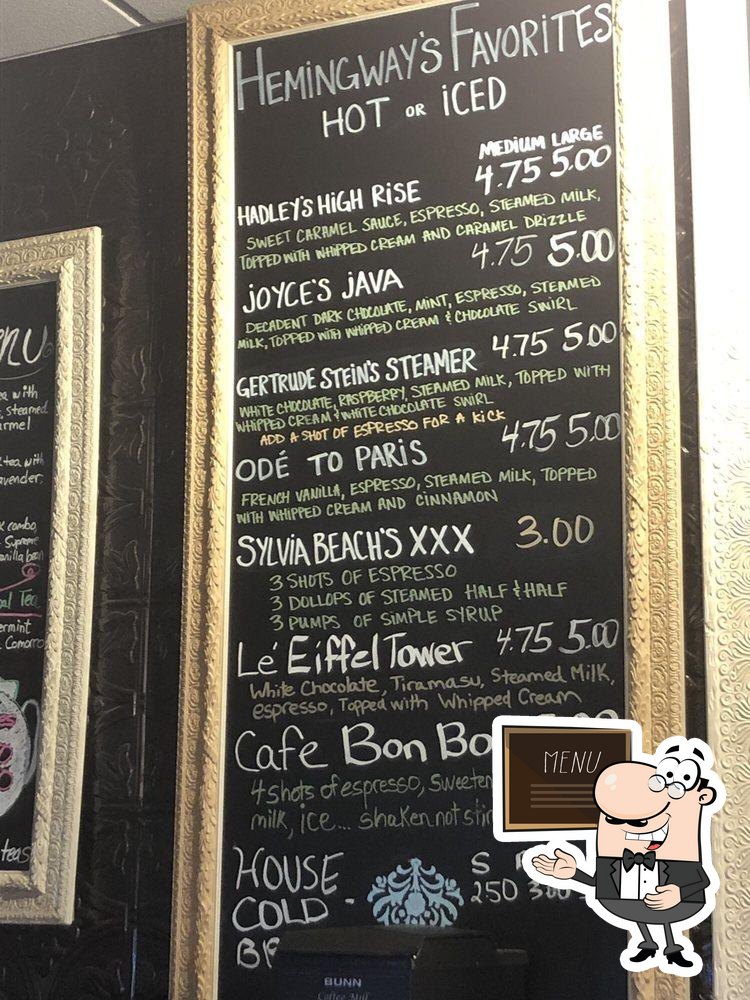 HEMINGWAY'S FAVORITES
HOT OR ICED
MEDIUM LARGE
HADLEY'S HIGH RISE 4.75 5.00
SWEET CARAMEL SAUCE, ESPRESSO, STEAMED MILK,
TOPPED WITH WHIPPED CREAM AND CARAMEL DRIZZLE
JOYCE'S JAVA 4.75 5.00
DECADENT DARK CHOCOLATE, MINT, ESPRESSO, STEAMED
MILK, TOPPED WITH WHIPPED CREAM & CHOCOLATE SWIRL
GERTRUDE STEIN'S STEAMER 4.75 5.00
WHITE CHOCOLATE, RASPBERRY, STEAMED MILK, TOPPED WITH
WHIPPED CREAM & WHITE CHOCOLATE SWIRL
ADD A SHOT OF ESPRESSO FOR A KICK
ODÉ TO PARIS 4.75 5.00
FRENCH VANILLA, ESPRESSO, STEAMED MILK, TOPPED
WITH WHIPPED CREAM AND CINNAMON
SYLVIA BEACH'S XXX 3.00
3 SHOTS OF ESPRESSO
3 DOLLOPS OF STEAMED HALF & HALF
3 PUMPS OF SIMPLE SYRUP
Lé Eiffel Tower 4.75 5.00
White Chocolate, Tiramasu, Steamed Milk,
espresso, Topped with Whipped Cream
Cafe Bon Bo
4 shots of espresso, Sweeten
milk, ice... shaken not sti
MENU
HOUSE S
COLD - 2.50 3.00
BR
BUNN
Coffee Mill
nu
ea with
, steamed
rmel
tea with
avender,
combo,
Supreme
anilla bean
al Tea
ermint
Comorro
teas